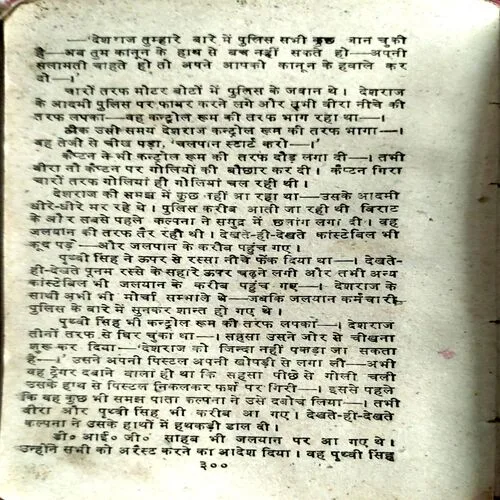 —'देशराज तुम्हारे बारे में पुलिस सभी कुछ जान चुकी
है—अब तुम कानून के हाथ से बच नहीं सकते हो—अपनी
सलामती चाहते हो तो अपने आपको कानून के हवाले कर
दो—।'
चारों तरफ मोटर बोटों में पुलिस के जवान थे। देशराज
के आदमी पुलिस पर फायर करने लगे और तभी बीरा नीचे की
तरफ लपका—वह कन्ट्रोल रूम की तरफ भाग रहा था—।
ठीक उसी समय देशराज कन्ट्रोल रूम की तरफ भागा—।
वह तेजी से चीख पड़ा, 'जलपान स्टार्ट करो—।'
कैप्टन ने भी कन्ट्रोल रूम की तरफ दौड़ लगा दी—। तभी
बीरा ने कैप्टन पर गोलियों की बौछार कर दी। कैप्टन गिरा
चारों तरफ गोलियां ही गोलियां चल रही थीं।
देशराज की समझ में कुछ नहीं आ रहा था—उसके आदमी
धीरे-धीरे मर रहे थे। पुलिस करीब आती जा रही थी विराट
के और सबसे पहले कल्पना ने समुद्र में छलांग लगा दी। वह
जलयान की तरफ तैर रही थी। देखते-ही-देखते कांस्टेबिल भी
कूद पड़े—और जलपान के करीब पहुंच गए।
पृथ्वी सिंह ने ऊपर से रस्सा नीचे फेंक दिया था—। देखते-
ही-देखते पूनम रस्से के सहारे ऊपर चढ़ने लगी और तभी अन्य
कांस्टेबिल भी जलयान के करीब पहुंच गए—। देशराज के
साथी अभी भी मोर्चा सम्भाले थे—जबकि जलयान कर्मचारी
पुलिस के बारे में सुनकर शान्त हो गए थे।
पृथ्वी सिंह भी कन्ट्रोल रूम की तरफ लपका—। देशराज
तीनों तरफ से घिर चुका था—। सहसा उसने जोर से चीखना
शुरू कर दिया—'देशराज को जिन्दा नहीं पकड़ा जा सकता
है—।' उसने अपनी पिस्टल अपनी खोपड़ी से लगा ली—अभी
वह ट्रेगर दबाने वाला ही था कि सहसा पीछे से गोली चली
उसके हाथ से पिस्टल निकलकर फर्श पर गिरी—। इससे पहले
कि वह कुछ भी समझ पाता कल्पना ने उसे दबोच लिया—। तभी
बीरा और पृथ्वी सिंह भी करीब आ गए। देखते-ही-देखते
कल्पना ने उसके हाथों में हथकड़ी डाल दी।
डी० आई० जी० साहब भी जलयान पर आ गए थे।
उन्होंने सभी को अरेस्ट करने का आदेश दिया। वह पृथ्वी सिंह
३००